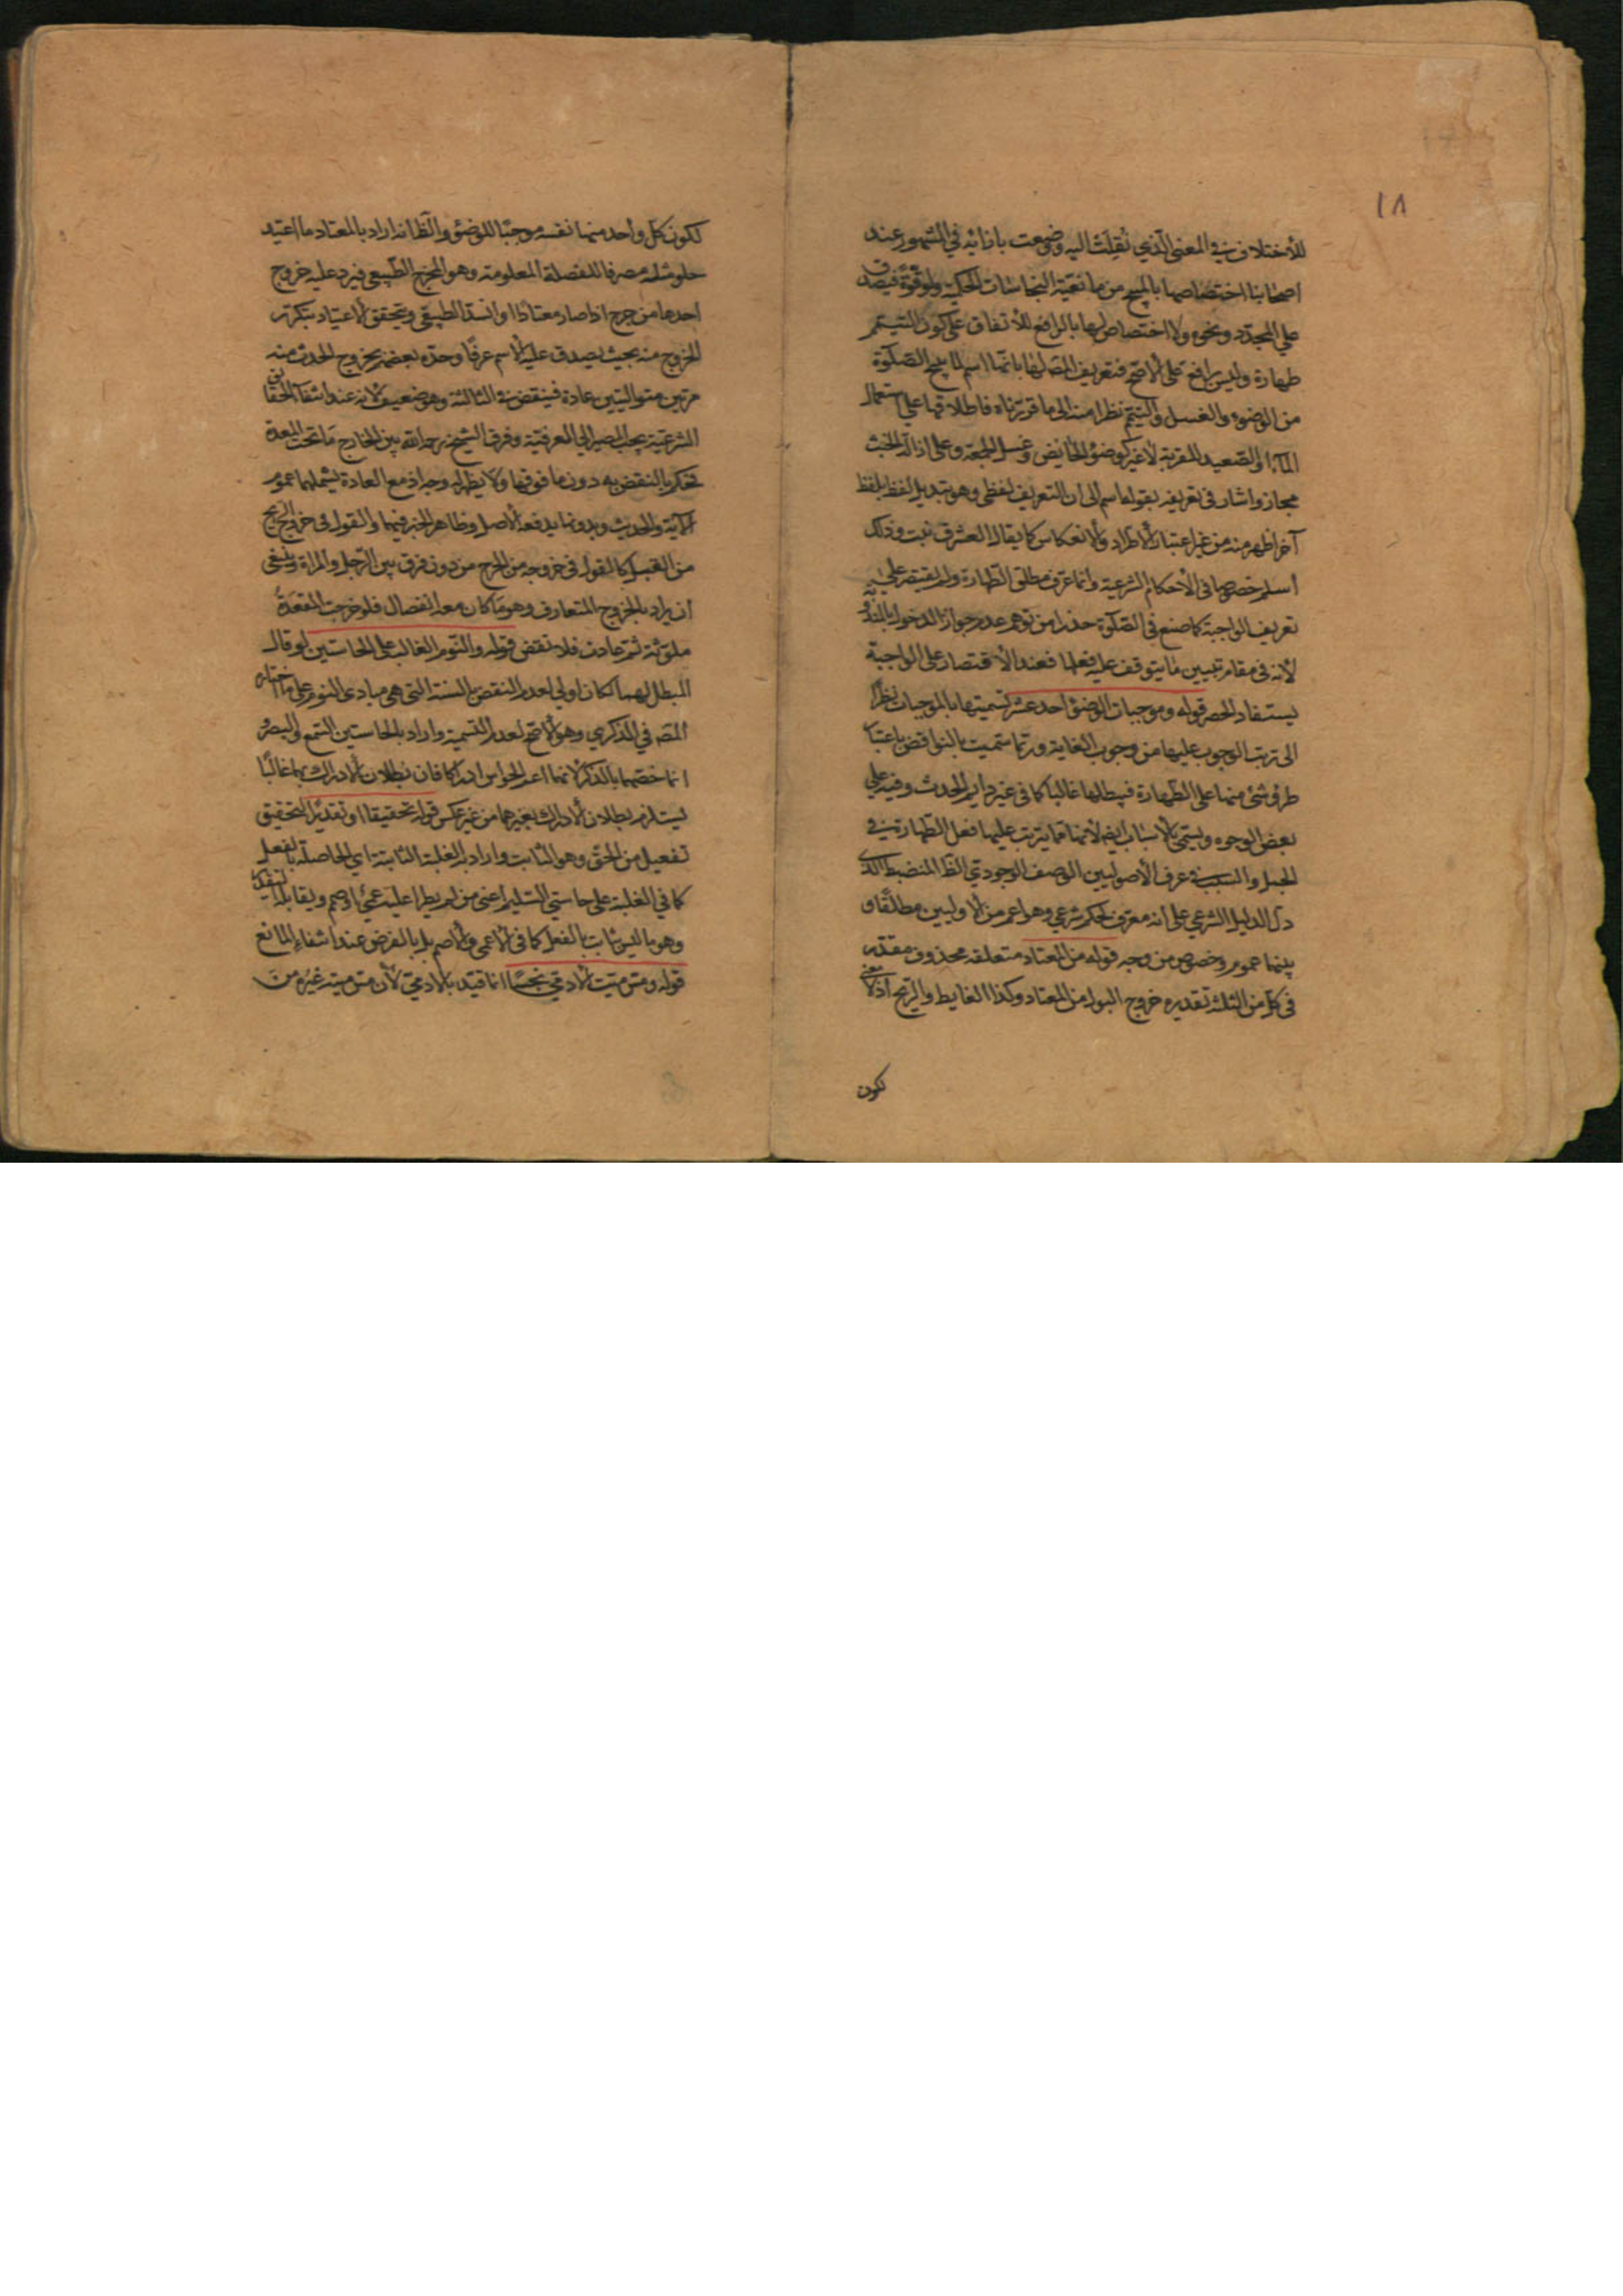 ١٨
للأختلاف في المعنى الذي نقلت اليه وضعت بازائه في المشهور عند
اصحابنا اختصاصها بالمبيح من مانعية النجاسات الحكمية ولو قوة فيصدق
على المجدد ونحوه ولا اختصاص لها بالرافع للأتفاق على كون التيمم
طهارة وليس برافع على الأصح فتعريف المص لها بانها اسم لما يبيح الصلوة
من الوضوء والغسل والتيمم نظرا منه الى ما قررناه فاطلاقها على استعمال
الماء او الصعيد للقربة لا غير كوضوء الحائض وغسل الجمعة وعلى ازالة الخبث
مجاز واشار في تعريفه بقوله اسم الى ان التعريف لفظي وهو تبديل لفظ بلفظ
آخر اظهر منه من غير اعتبار الأطراد والأنعكاس كما يقال العشرق نبت وذلك
اسلم خصوصا في الأحكام الشرعية وانما عرف مطلق الطهارة ولم يقتصر على
تعريف الواجبة كما صنع في الصلوة حذرا من توهم عدم جواز الدخول بالمندوبة
لأنه في مقام تبيين ما يتوقف عليه فعلها فعند الأقتصار على الواجبة
يستفاد الحصر قوله وموجبات الوضوء احد عشر تسميتها بالموجبات نظرا
الى ترتب الوجوب عليها من وجوب الغاية وربما سميت بالنواقض باعتبار
طرو شئ منها على الطهارة فيبطلها غالبا كما في غير دايم الحدث وقيد على
بعض الوجوه ويسمى بالأسباب ايضا لأنها مما يترتب عليها فعل الطهارة في
الجمل والسبب في عرف الأصوليين الوصف الوجودي الظا المنضبط الذي
دل الدليل الشرعي على انه معرف لحكم شرعي وهو اعم من الأوليين مطلقا و
بينهما عموم وخصوص من وجه قوله من المعتاد متعلقه محذوف مقدر
في كل من الثلثة تقديره خروج البول من المعتاد وكذا الغايط والريح اذ لا معنى
لكون
لكون كل واحد منها نفسه موجبا للوضوء والظا انه اراد بالمعتاد ما اعتيد
خلو مثله مصرفا للفضلة المعلومة وهو المخرج الطبيعي فيرد عليه خروج
احدها من جرح اذا صار معتادا او انسد الطبيعي ويتحقق الأعتياد بتكرر
الخروج منه بحيث يصدق عليه الأسم عرفا وحده بعضهم بخروج الحدث منه
مرتين متواليتين عادة فينقض منه الثالثة وهو ضعيف لأنه عند انتفاء الحقائق
الشرعية يجب المصير الى العرفية وفرق الشيخ رحمه الله بين الخارج مما تحت المعدة
فحكم بالنقض به دون ما فوقها ولا يظهر له وجه اذ مع العادة يشملهما عموم
الآية والحديث وبدونها يدفعه الأصل وظاهر الخبر فيهما والقول في خروج الريح
من القبل كالقول في خروجه من الجرح من دون فرق بين الرجل والمراة وينبغي
ان يراد بالخروج المتعارف وهو ما كان معه انفصال فلو خرجت المقعدة
ملوثة ثم عادت فلا نقض قوله والنوم الغالب على الحاستين لو قال
المبطل لهما لكان اولى لعدم النقض بالسنة التي هي مبادى النوم على ما اختاره
المص في الذكرى وهو الأصح لعدم التسمية واراد بالحاستين السمع والبصر و
انما خصهما بالذكر لأنهما اعم الحواس ادراكا فان بطلان الأدراك بهما غالبا
يستلزم بطلان الأدراك بغيرهما من غير عكس قوله تحقيقا او تقديرا التحقيق
تفعيل من الحق وهو الثابت واراد به الغلبة الثابتة اي الحاصلة بالفعل
كما في الغلبة على حاستي السليم اعني من لم يطرا عليه عمى او صمم ويقابله التقدير
وهو ما ليس ثابت بالفعل كما في الأعمى والأصم بل بالفرض عند انتفاء المانع
قوله ومس ميت الآدمي نجسا انما قيد بالأدمي لأن مس ميتة غيره من